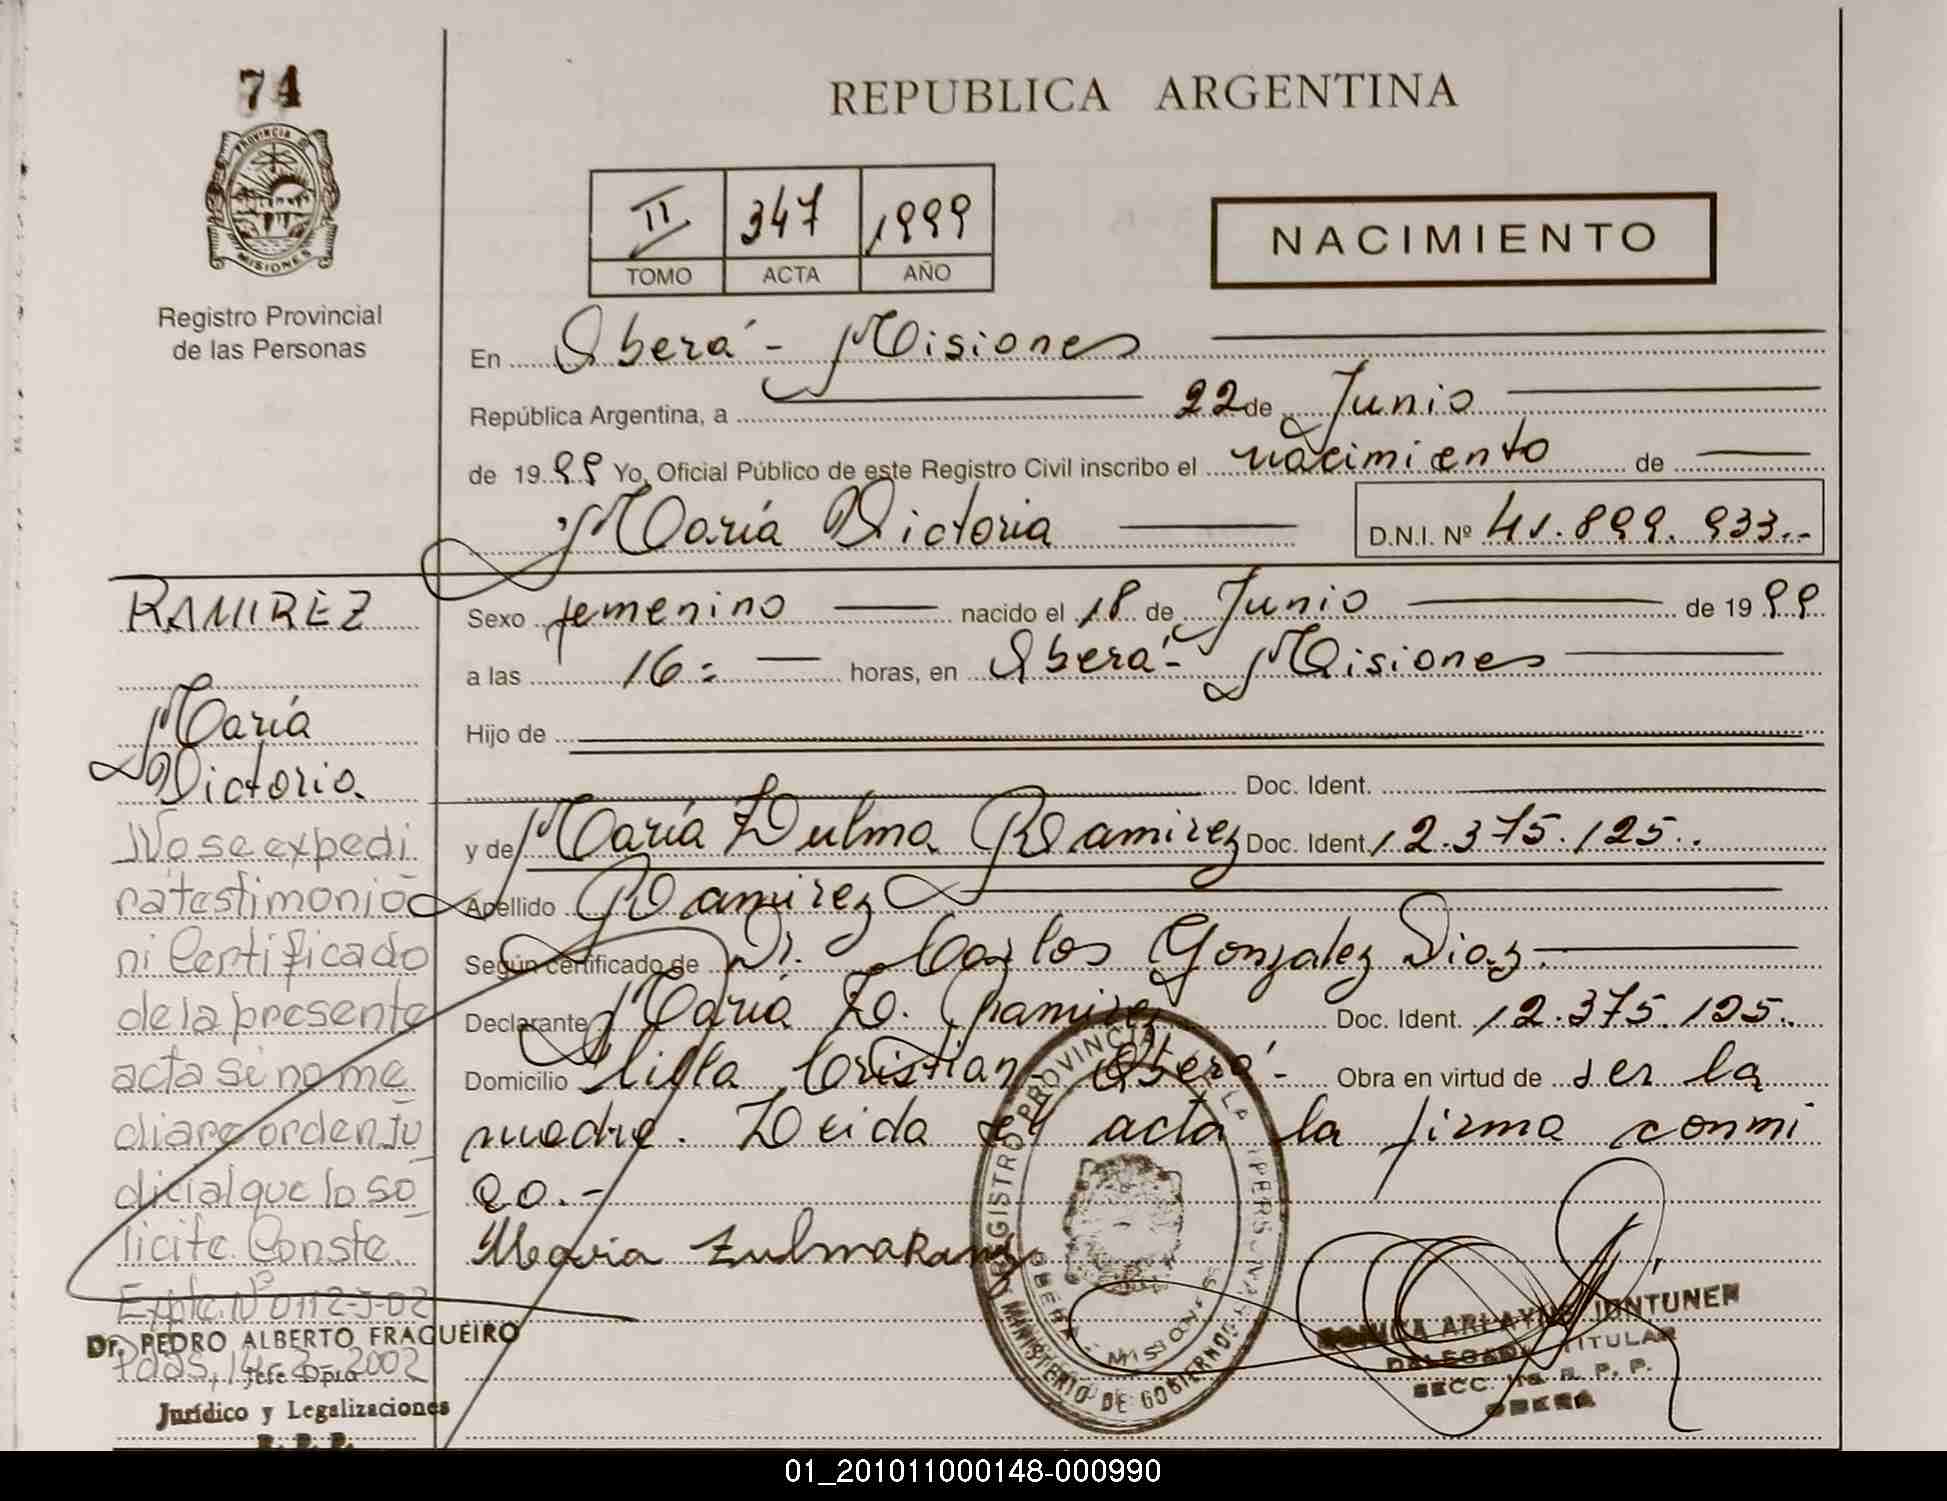 74
REPUBLICA ARGENTINA
PROVINCIA DE
MISIONES
Registro Provincial
de las Personas
II 347 1999
TOMO ACTA AÑO
NACIMIENTO
En Oberá - Misiones
República Argentina, a 22 de Junio
de 1999 Yo, Oficial Público de este Registro Civil inscribo el nacimiento de
María Victoria D.N.I. Nº 41.899.933.-
RAMIREZ
María
Victoria
No se expedi
ra testimonio
ni Certificado
de la presente
acta si no me
diare orden Ju
dicial que lo so
licite. Conste.
Expte. Nº 0112-J-02
Pdas, 2002
Dr. PEDRO ALBERTO FRAQUEIRO
Jefe Dpto
Jurídico y Legalizaciones
R. P. P.
Sexo femenino nacido el 18 de Junio de 1999
a las 16:- horas, en Oberá - Misiones
Hijo de
Doc. Ident.
y de María Zulma Ramirez Doc. Ident. 12.375.125.
Apellido Ramirez
Según certificado de Dr. Carlos Gonzalez Diaz.
Declarante María Z. Ramirez Doc. Ident. 12.375.125.
Domicilio Villa Cristian Oberá - Obra en virtud de ser la
madre. Leida el acta la firma conmi
go.-
Maria Zulma Ramirez
REGISTRO PROVINCIAL DE LAS PERSONAS
MINISTERIO DE GOBIERNO
OBERA MISIONES
DELEGADA TITULAR
SECC. R. P. P.
OBERA
01_201011000148-000990